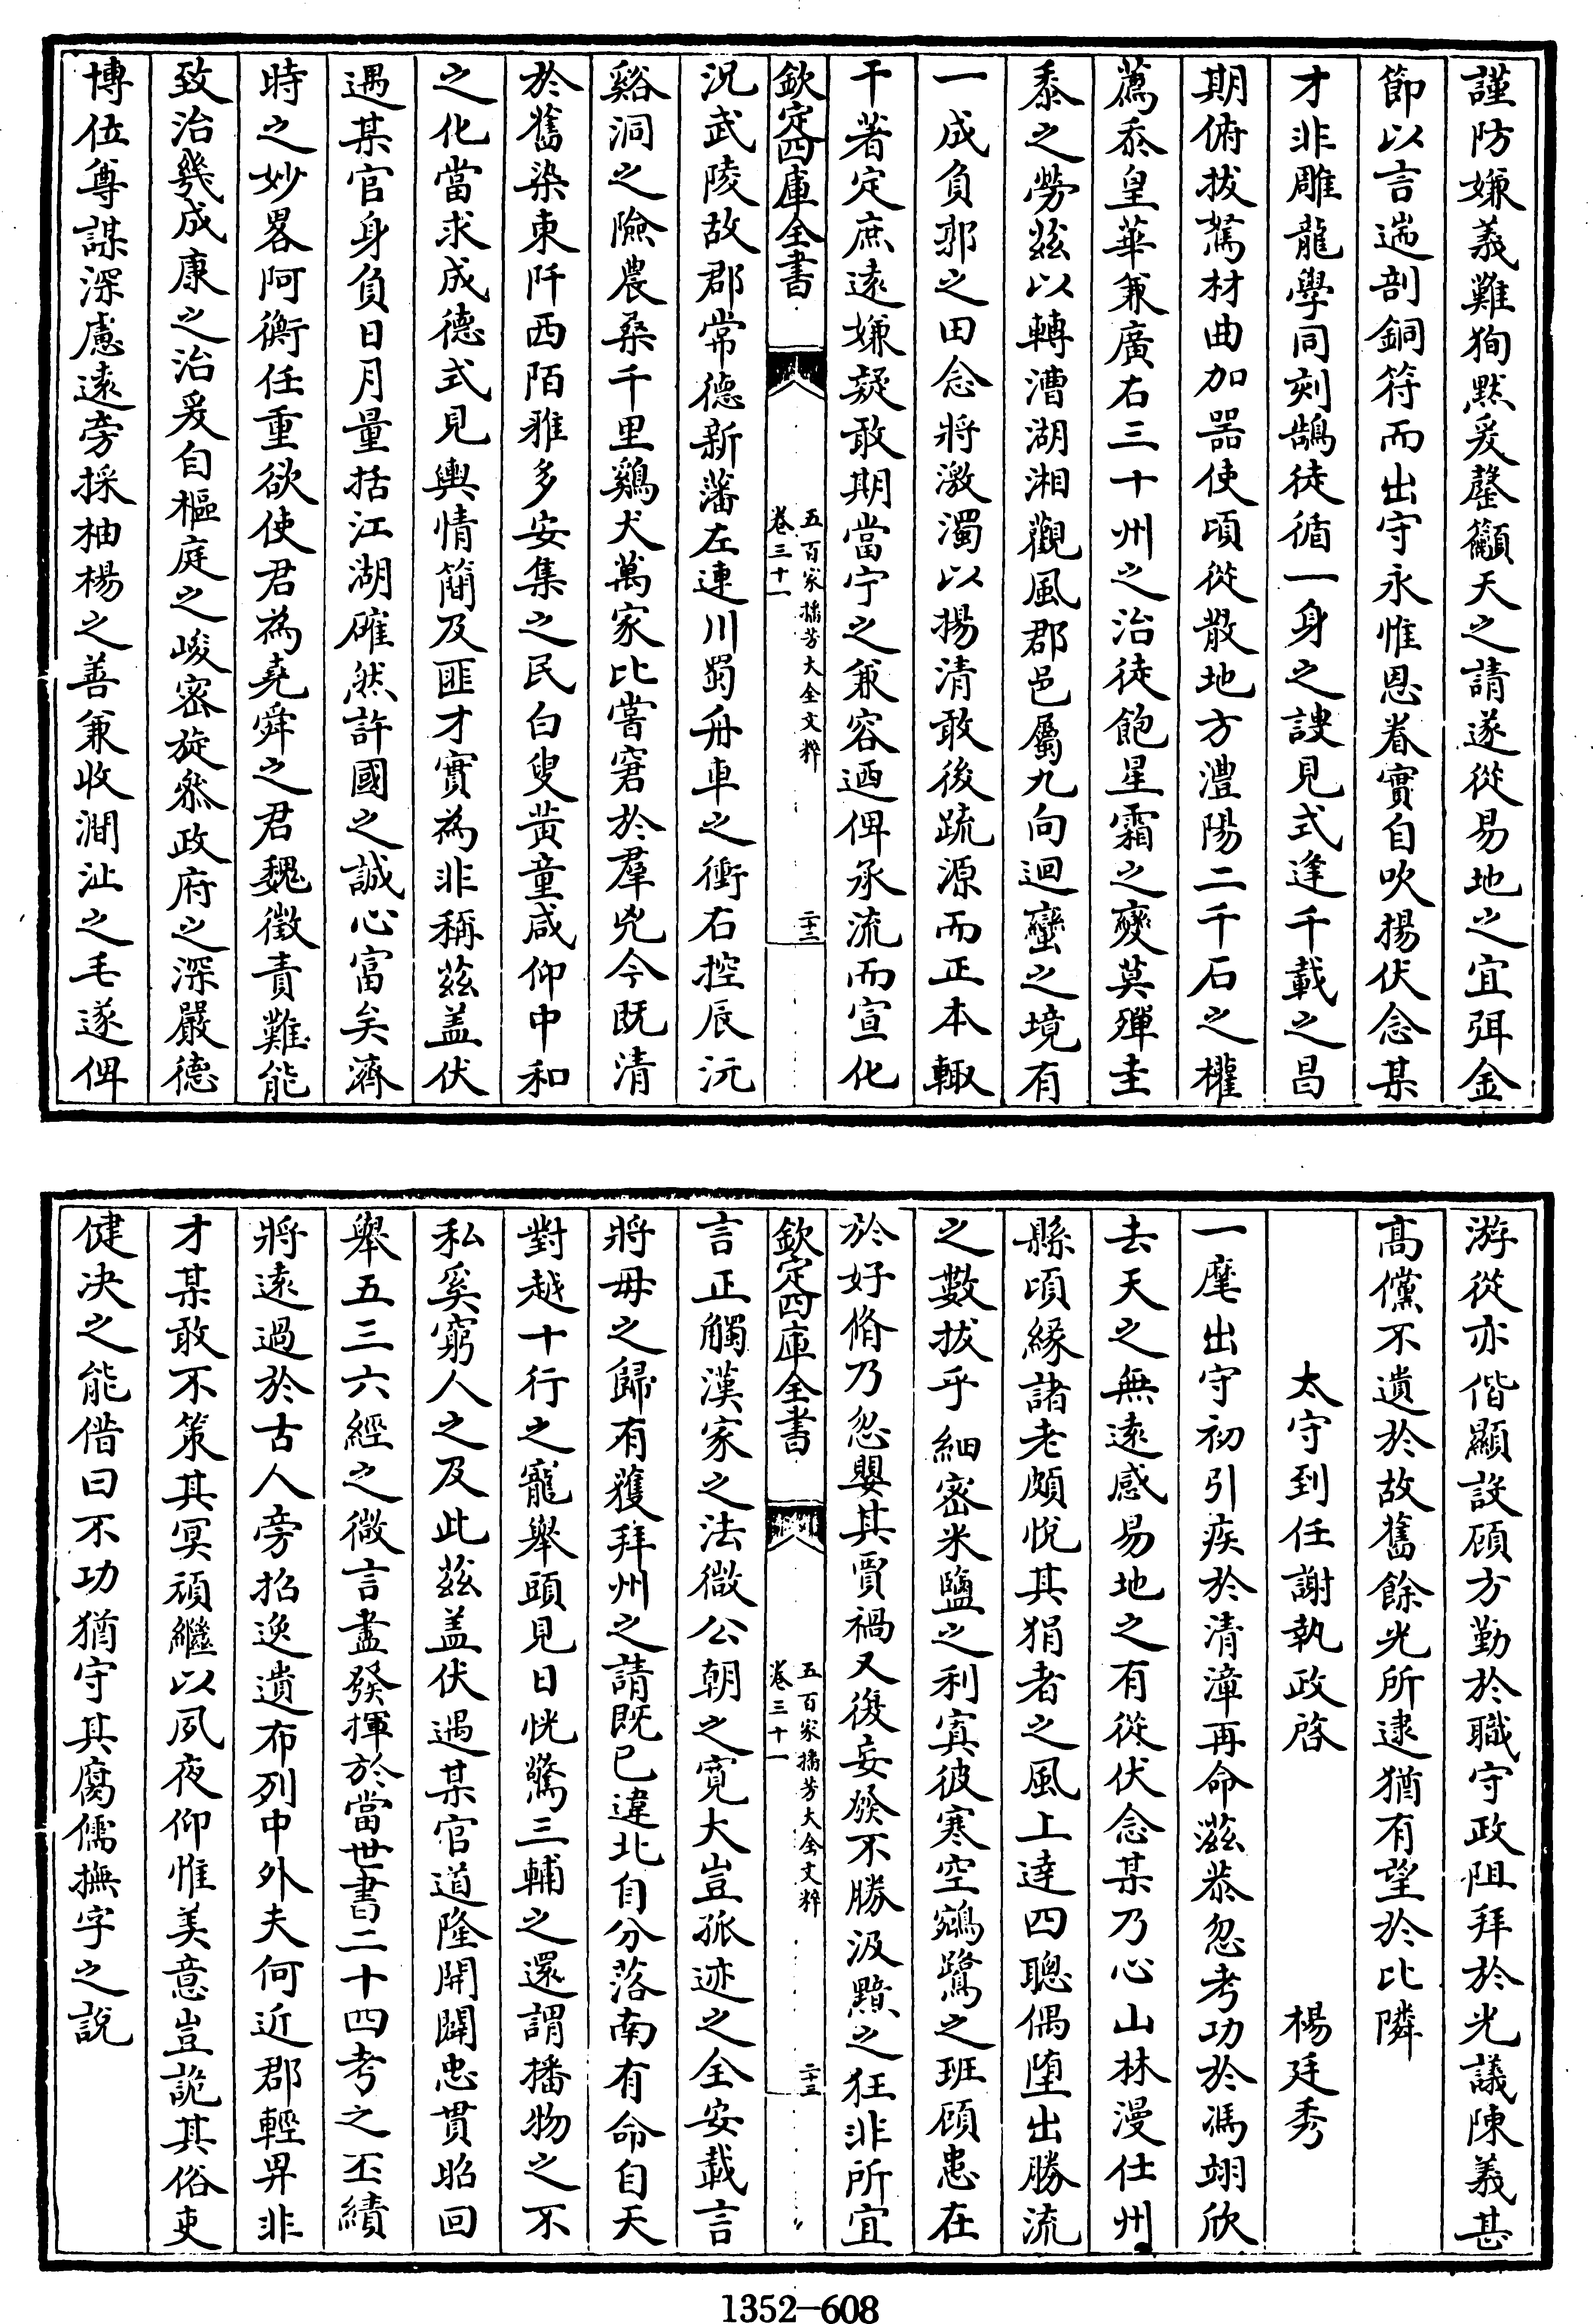 謹防嫌義難狥黙爰罄籲天之請遂從易地之宜弭金
節以言遄剖銅符而出守永惟恩眷實自吹揚伏念某
才非雕龍學同刻鵠徒循一身之謏見式逢千載之昌
期俯拔駑材曲加器使頃從散地方澧陽二千石之權
薦忝皇華兼廣右三十州之治徒飽星霜之變莫殫圭
黍之勞兹以轉漕湖湘觀風郡邑屬九向迴鑾之境有
一成負郭之田念將激濁以揚清敢後疏源而正本輙
干著定庶遠嫌疑敢期當宁之兼容迺俾承流而宣化
欽定四庫全書
五百家播芳大全文粹
卷三十一
二十二
況武陵故郡常德新藩左連川蜀舟車之衝右控辰沅
谿洞之險農桑千里鷄犬萬家比嘗窘於羣兇今既清
於舊染東阡西陌雖多安集之民白叟黄童咸仰中和
之化當求成德式見輿情簡及匪才實為非稱兹盖伏
遇某官身負日月量括江湖確然許國之誠心富矣濟
時之妙畧阿衡任重欲使君為堯舜之君魏徵責難能
致治幾成康之治爰自樞庭之峻密旋叅政府之深嚴德
博位尊謀深慮遠旁採柚楊之善兼收澗沚之毛遂俾
游從亦偕顯設顧方勤於職守政阻拜於光議陳義甚
高儻不遺於故舊餘光所逮猶有望於比隣
太守到任謝執政啓 楊廷秀
一麾出守初引疾於清漳再命滋恭忽考功於馮翊欣
去天之無遠感易地之有從伏念某乃心山林漫仕州
縣頃緣諸老頗悅其狷者之風上達四聰偶墮出勝流
之數拔乎細密米鹽之利寘彼寒空鵷鷺之班顧患在
於好脩乃忽嬰其賈禍又復妄發不勝汲黯之狂非所宜
欽定四庫全書
五百家播芳大全文粹
卷三十一
二十三
言正觸漢家之法微公朝之寛大豈孤迹之全安載言
將毋之歸有獲拜州之請既已違北自分落南有命自天
對越十行之寵舉頭見日恍驚三輔之還謂播物之不
私奚窮人之及此兹盖伏遇某官道隆開闢忠貫昭回
舉五三六經之微言盡發揮於當世書二十四考之丕績
將遠過於古人旁招逸遺布列中外夫何近郡輕畀非
才某敢不策其冥頑繼以夙夜仰惟美意豈詭其俗吏
健决之能偕曰不功猶守其腐儒撫字之説
1352-608